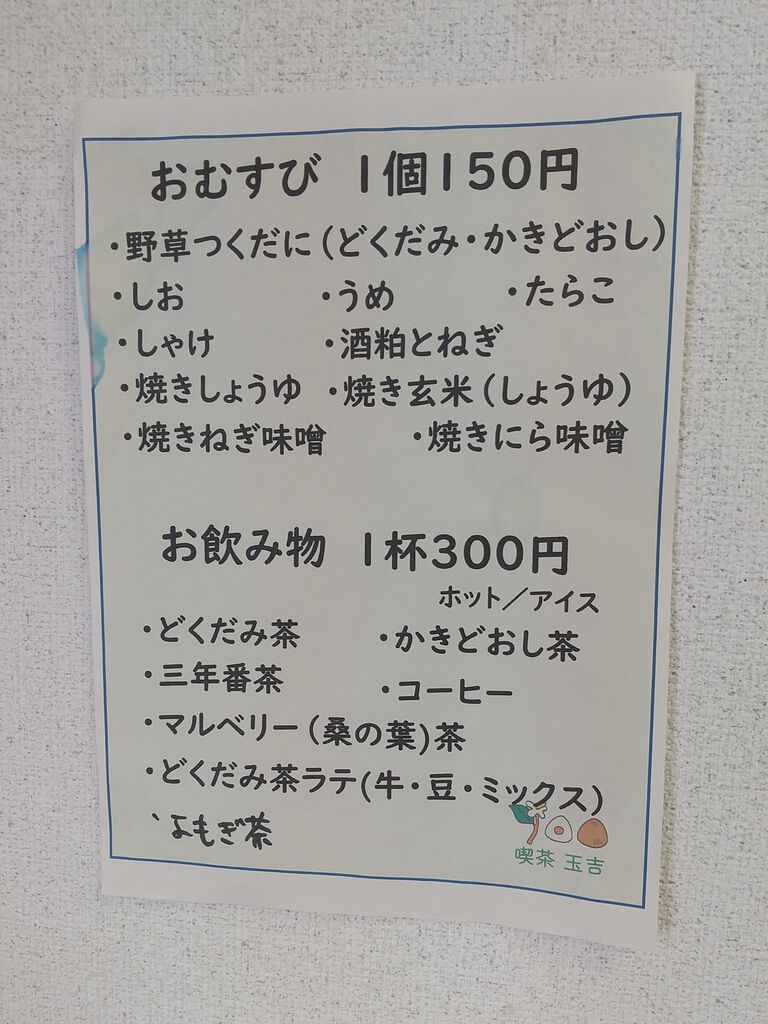 おむすび 1個150円
・野草つくだに(どくだみ・かきどおし)
・しお ・うめ ・たらこ
・しゃけ ・酒粕とねぎ
・焼きしょうゆ ・焼き玄米(しょうゆ)
・焼きねぎ味噌 ・焼きにら味噌
お飲み物 1杯300円
ホット／アイス
・どくだみ茶 ・かきどおし茶
・三年番茶 ・コーヒー
・マルベリー(桑の葉)茶
・どくだみ茶ラテ(牛・豆・ミックス)
・よもぎ茶
喫茶 玉吉